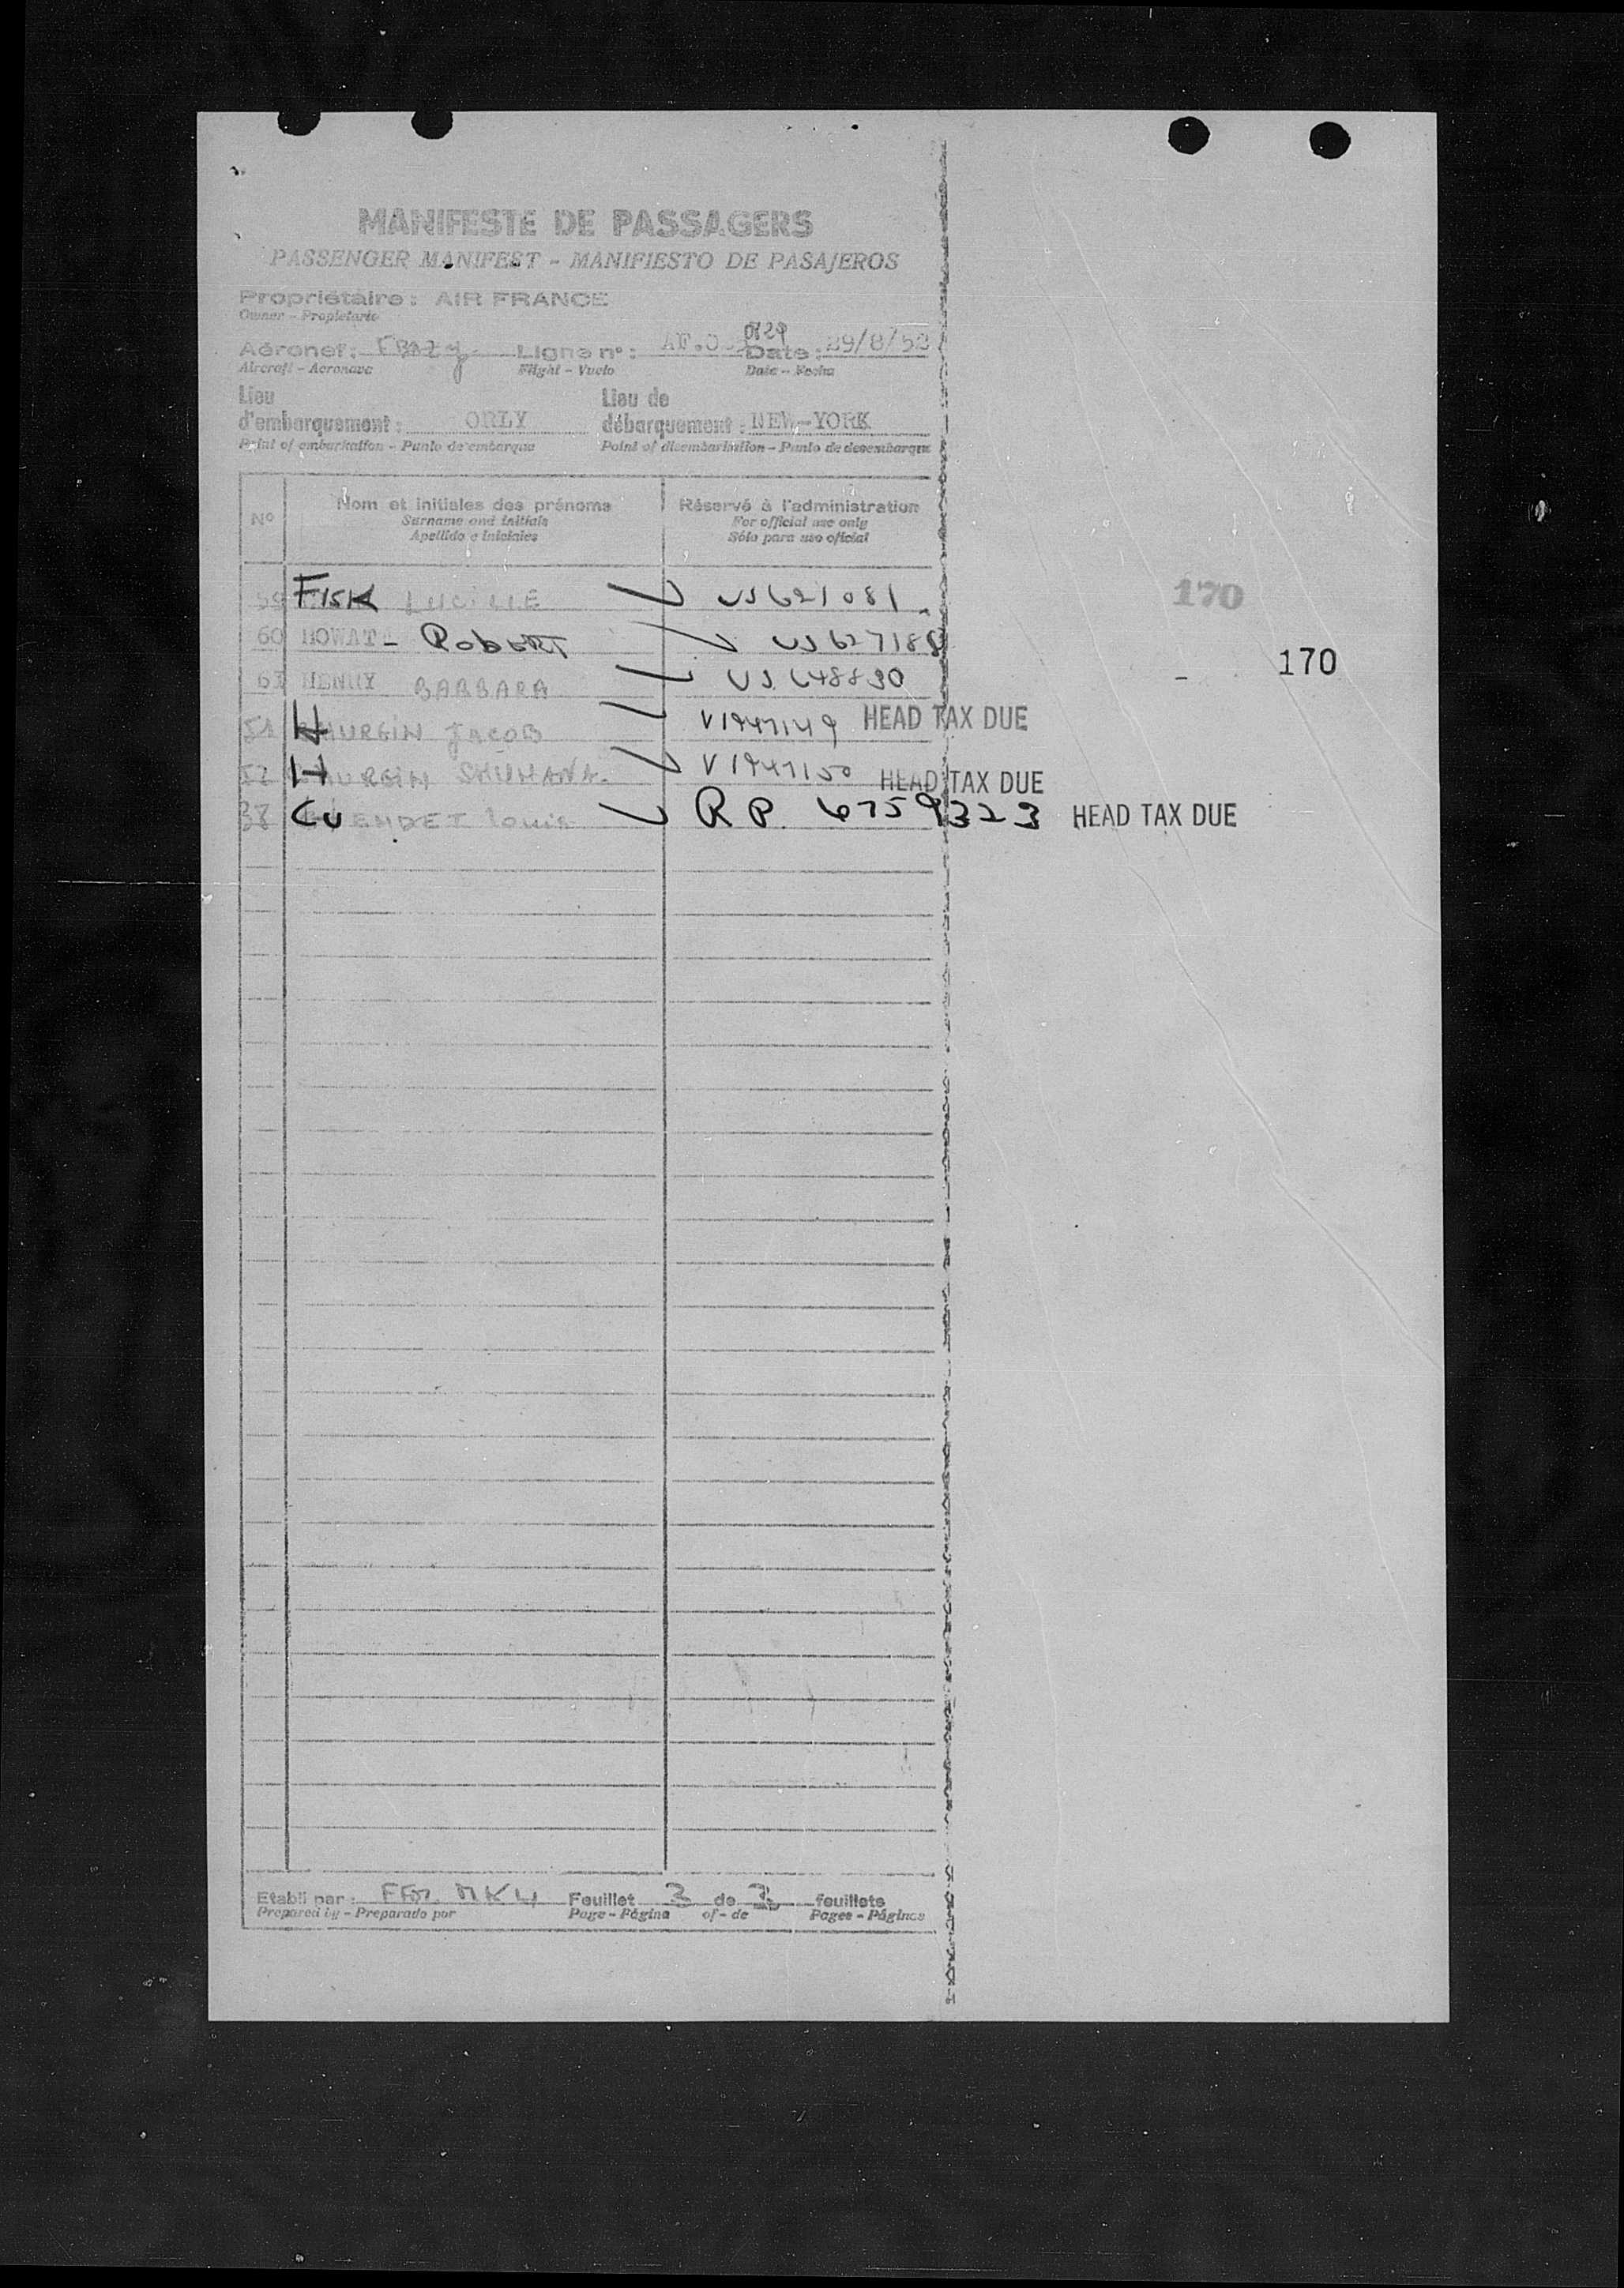 MANIFESTE DE PASSAGERS
PASSENGER MANIFEST - MANIFIESTO DE PASAJEROS
Propriétaire : AIR FRANCE
Owner - Propietario
0829
Aéronef : Ligne n° : AF.0 Date : 29/8/52
Aircraft - Aeronave Flight - Vuelo Date - Fecha
Lieu d'embarquement : ORLY Lieu de débarquement : NEW-YORK
Point of embarkation - Punto de embarque Point of disembarkation - Punto de desembarque
N° Nom et initiales des prénoms Réservé à l'administration
Surname and initials For official use only
Apellido e iniciales Sólo para uso oficial
59 FISK LUCILLE US 621081 170
60 MOWAT - ROBERT US 627188
170
HENRY BARBARA US 648830
51 HURGIN JACOB V1947149 HEAD TAX DUE
52 HURGIN V1947150 HEAD TAX DUE
38 CUENDET Louis R P. 6759323 HEAD TAX DUE
Etabli par : Feuillet 3 de 3 feuillets
Prepared by - Preparado por Page - Página of - de Pages - Páginas